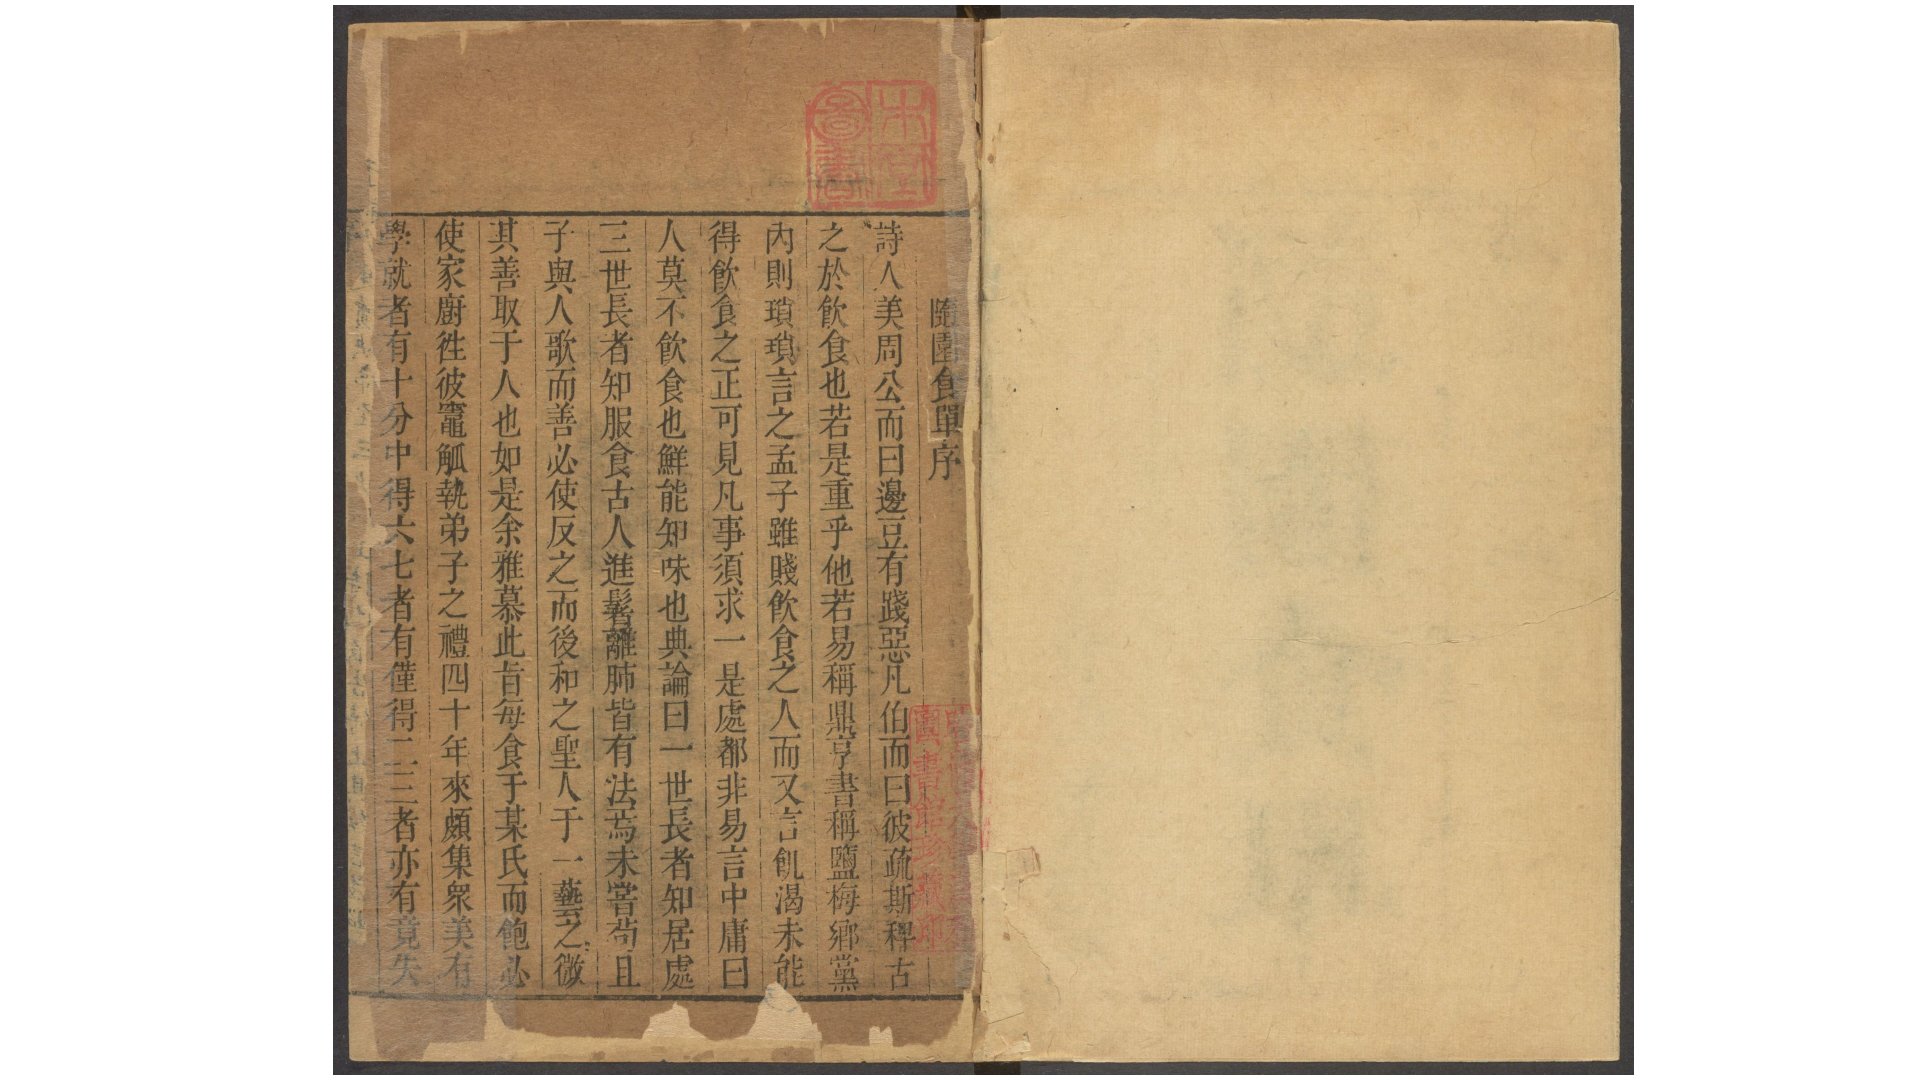 隨園食單序
詩人美周公而曰邊豆有踐惡凡伯而曰彼疏斯稗古
之於飲食也若是重乎他若易稱鼎亨書稱鹽梅鄉黨
內則瑣瑣言之孟子雖賤飲食之人而又言飢渴未能
得飲食之正可見凡事須求一是處都非易言中庸曰
人莫不飲食也鮮能知味也典論曰一世長者知居處
三世長者知服食古人進鬐離肺皆有法焉未嘗苟且
子與人歌而善必使反之而後和之聖人于一藝之微
其善取于人也如是余雅慕此旨每食于某氏而飽必
使家廚徃彼竈觚執弟子之禮四十年來頗集眾美有
學就者有十分中得六七者有僅得二三者亦有竟失
木堂
圖書